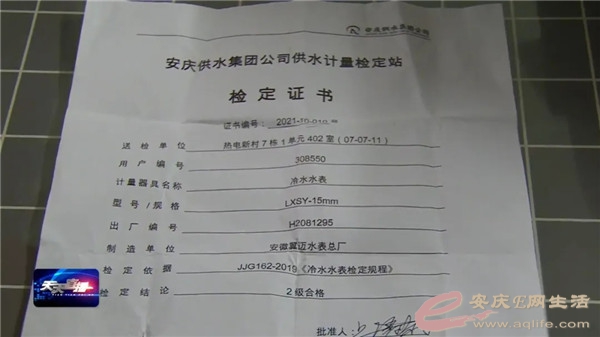 安庆供水集团公司
安庆供水集团公司供水计量检定站
检定证书
证书编号: 2021-10-010
送检单位 热电新村7栋1单元402室(07-07-11)
用户编号 308550
计量器具名称 冷水水表
型号/规格 LXSY-15mm
出厂编号 H2081295
制造单位 安徽翼迈水表总厂
检定依据 JJG162-2019《冷水水表检定规程》
检定结论 2级合格
批准人:
天天直播
安庆E网生活
www.aqlife.com